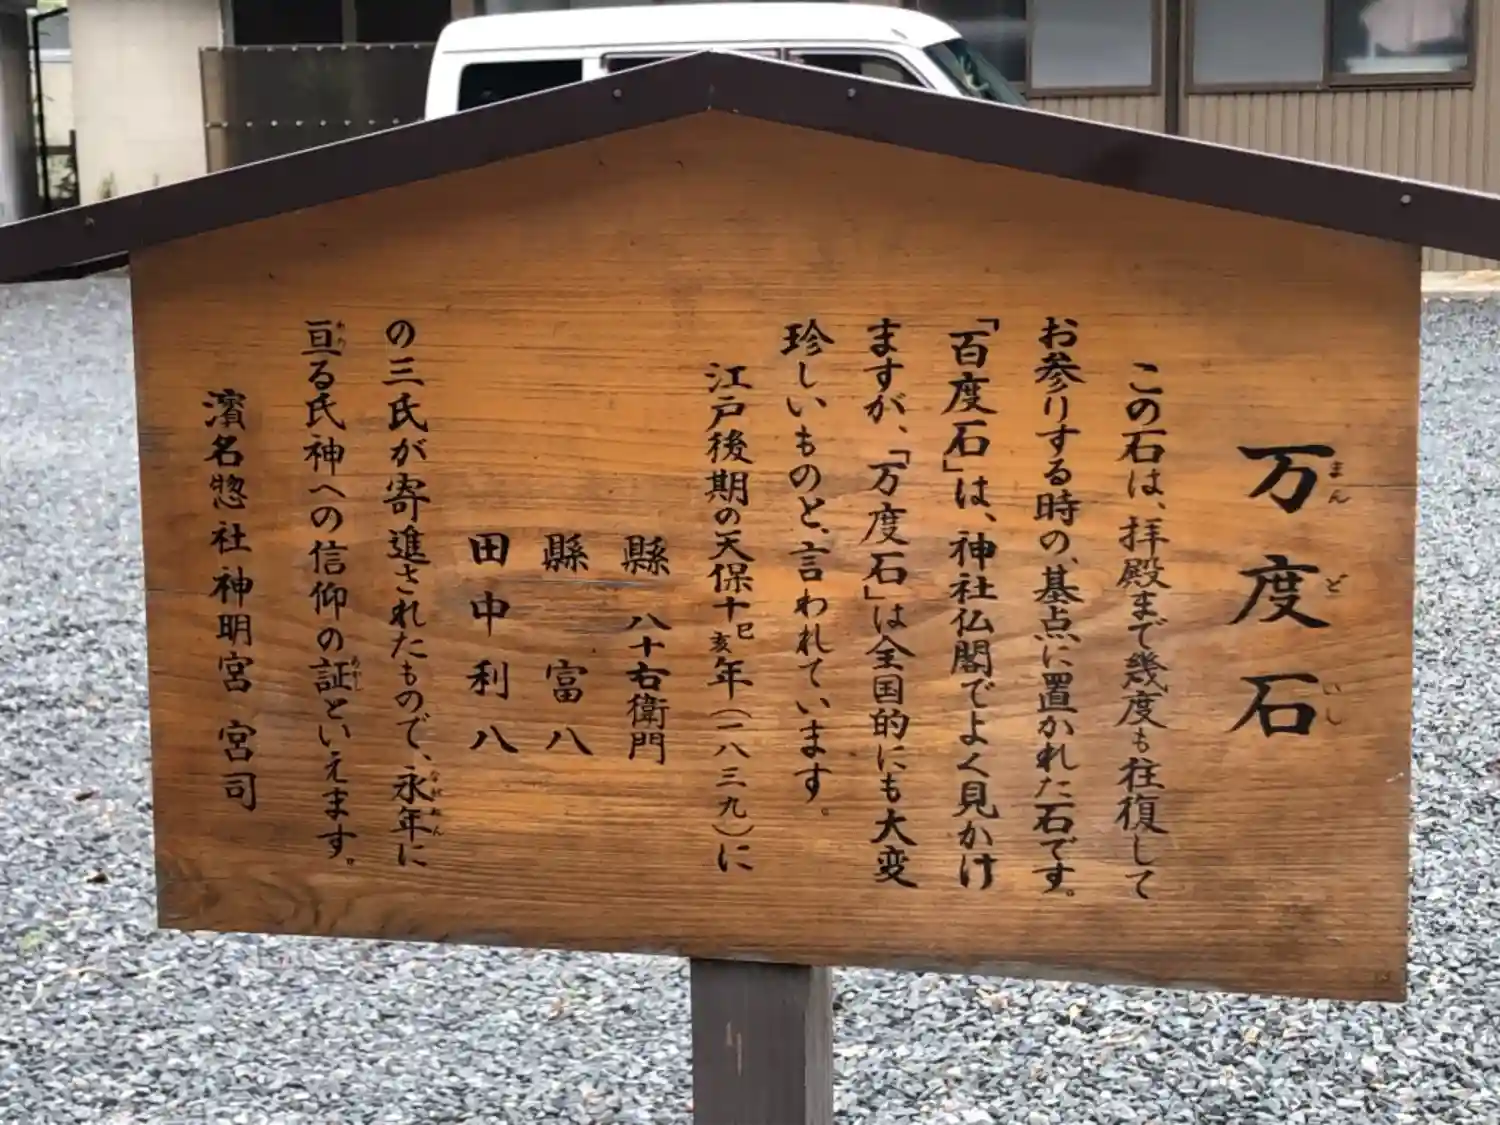 万度石
まんどいし
この石は、拝殿まで幾度も往復して
お参りする時の、基点に置かれた石です。
「百度石」は、神社仏閣でよく見かけ
ますが、「万度石」は全国的にも大変
珍しいものと、言われています。
江戸後期の天保十己亥年(一八三九)に
縣 八十右衛門
縣 富八
田中利八
の三氏が寄進されたもので、永年に
ながねん
亘る氏神への信仰の証といえます。
わた
あかし
濱名惣社神明宮 宮司